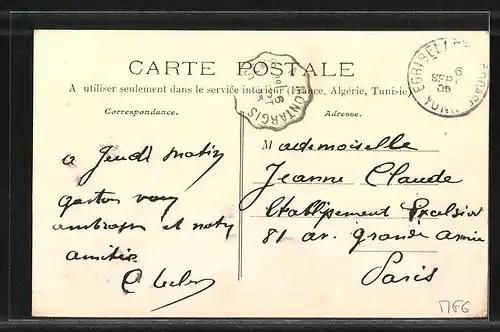 CARTE POSTALE
A utiliser seulement dans le service intérieur (France, Algérie, Tunisie)
Correspondance.
Adresse.
MONTARGIS
EGRISELLE
6
SEPT
05
YONNE
a Jeudi matin
gaston vous
embrasse et
amitié
Mademoiselle
Jeanne Claude
Etablissement Excelsior
81 av. grande armée
Paris